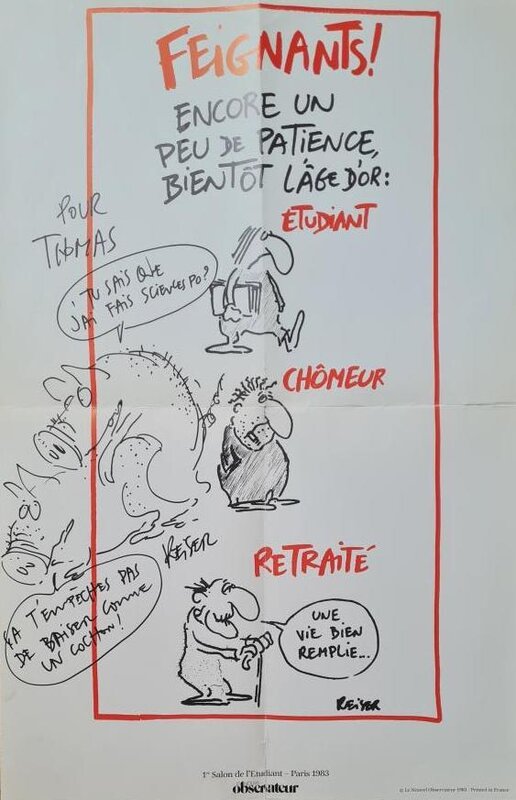 FEIGNANTS!
ENCORE UN
PEU DE PATIENCE,
BIENTÔT L'ÂGE D'OR:
ÉTUDIANT
POUR
THOMAS
J'TU SAIS QUE
J'AI FAIS SCIENCES PO?
CHÔMEUR
REISER
RETRAITÉ
ÇA T'EMPÊCHES PAS
DE BAISER COMME
UN COCHON!
UNE
VIE BIEN
REMPLIE...
REISER
1er Salon de l'Etudiant – Paris 1983
observateur
© Le Nouvel Observateur 1983 - Printed in France